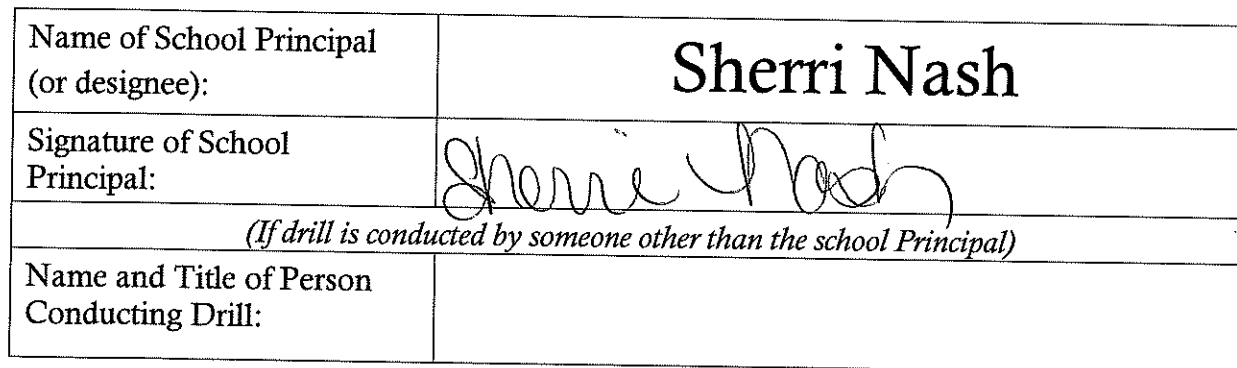 Name of School Principal
(or designee):
Sherri Nash
Signature of School
Principal:
Sherri Nash
(If drill is conducted by someone other than the school Principal)
Name and Title of Person
Conducting Drill: